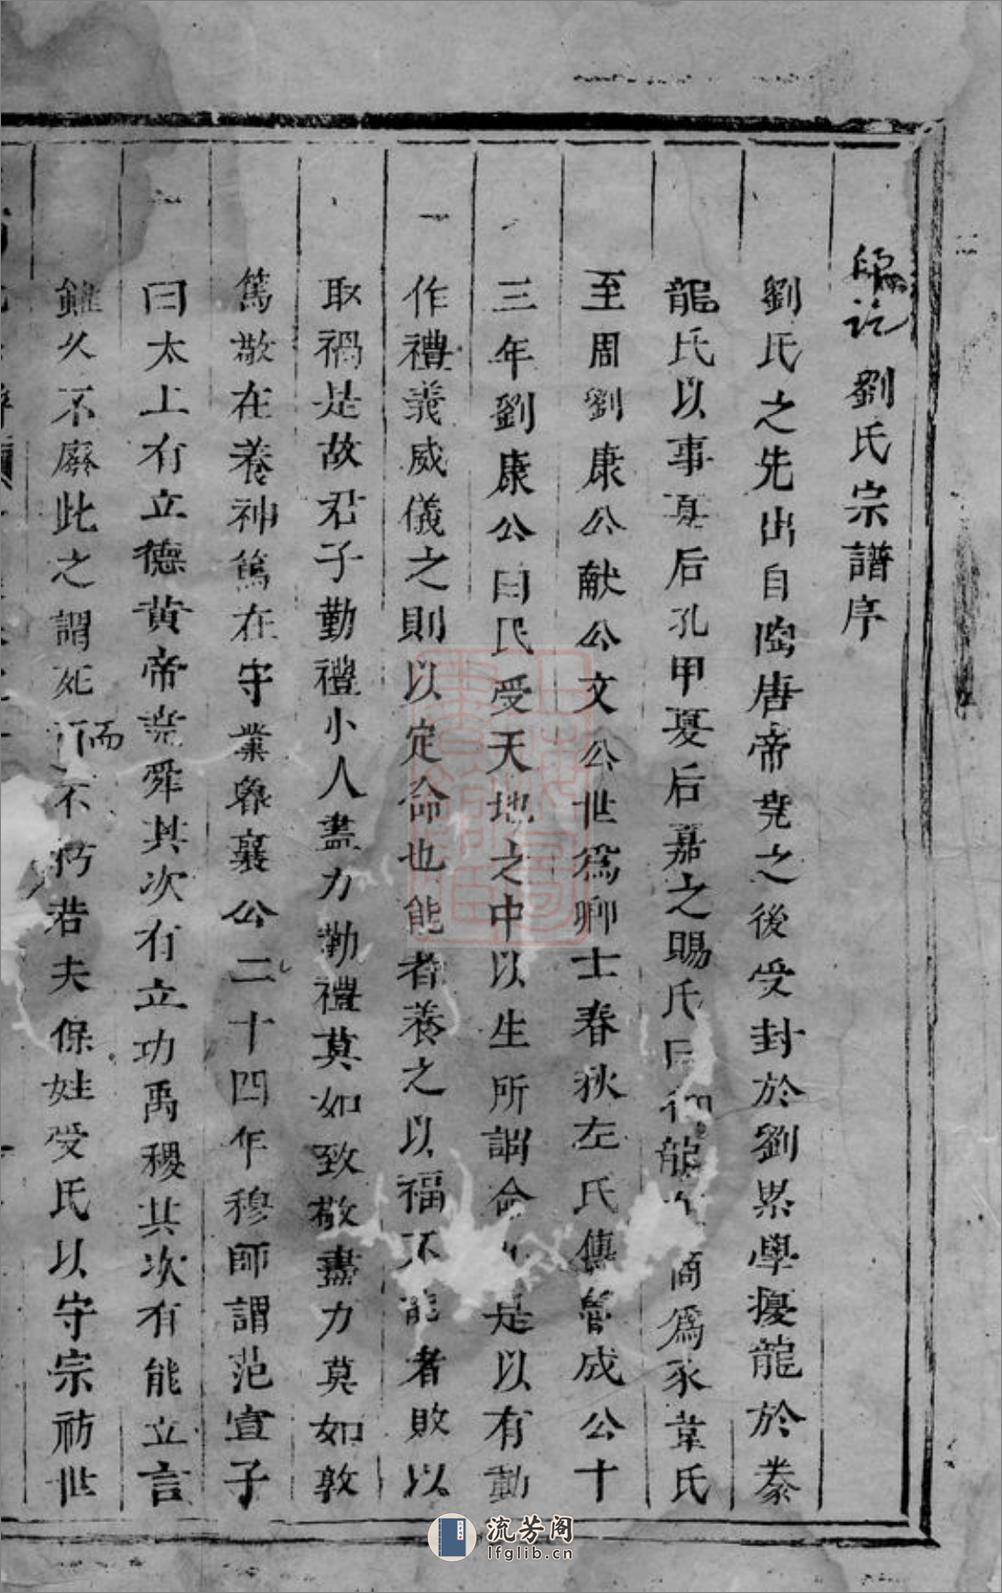 劉氏宗譜序
劉氏之先出自陶唐帝堯之後受封於劉累學擾龍於豢
龍氏以事夏后孔甲夏后嘉之賜氏曰御龍商爲豕韋氏
至周劉康公献公文公世爲卿士春秋左氏傳魯成公十
三年劉康公曰民受天地之中以生所謂命是以有動
作禮義威儀之則以定命也能者養之以福不能者敗以
取禍是故君子勤禮小人盡力勤禮莫如致敬盡力莫如敦
篤敬在養神篤在守業魯襄公二十四年穆師謂范宣子
曰太上有立德黄帝堯舜其次有立功禹稷其次有能立言
雖久不廢此之謂死而不朽若夫保姓受氏以守宗祊世
流芳阁
lfglib.cn